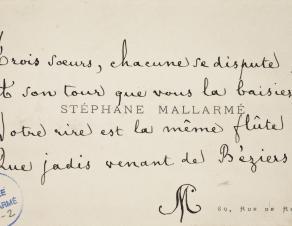 Trois sœurs, chacune se dispute,
Et son tour que vous la baisiez
STÉPHANE MALLARMÉ
Votre rire est la même flûte
Que jadis venant de Béziers
M
RUE DE